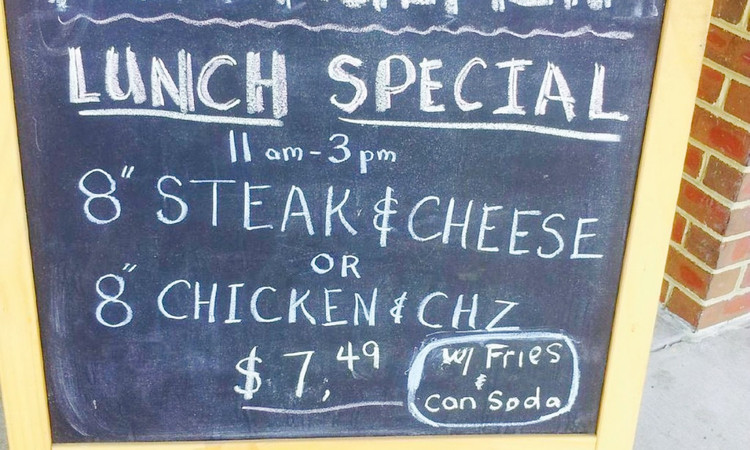 LUNCH SPECIAL
11 am - 3 pm
8" STEAK & CHEESE
OR
8" CHICKEN & CHZ
$7,49
w/ Fries
&
Can Soda